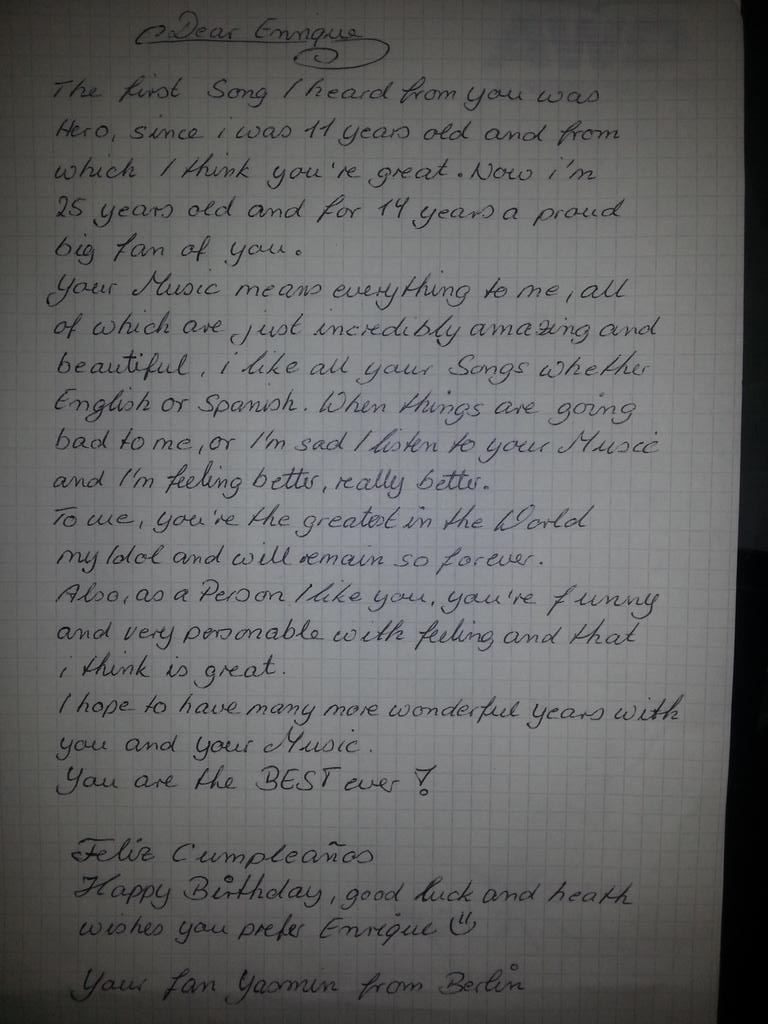 Dear Enrique
The first Song I heard from you was
Hero, since i was 11 years old and from
which I think you're great. Now i'm
25 years old and for 14 years a proud
big fan of you.
Your Music means everything to me, all
of which are just incredibly amazing and
beautiful, i like all your Songs whether
English or Spanish. When things are going
bad to me, or I'm sad I listen to your Music
and I'm feeling better, really better.
To me, you're the greatest in the World
my Idol and will remain so forever.
Also, as a Person I like you, you're funny
and very personable with feeling and that
i think is great.
I hope to have many more wonderful years with
you and your Music.
You are the BEST ever !
Feliz Cumpleaños
Happy Birthday, good luck and heath
wishes you prefer Enrique
Your fan Yasmin from Berlin